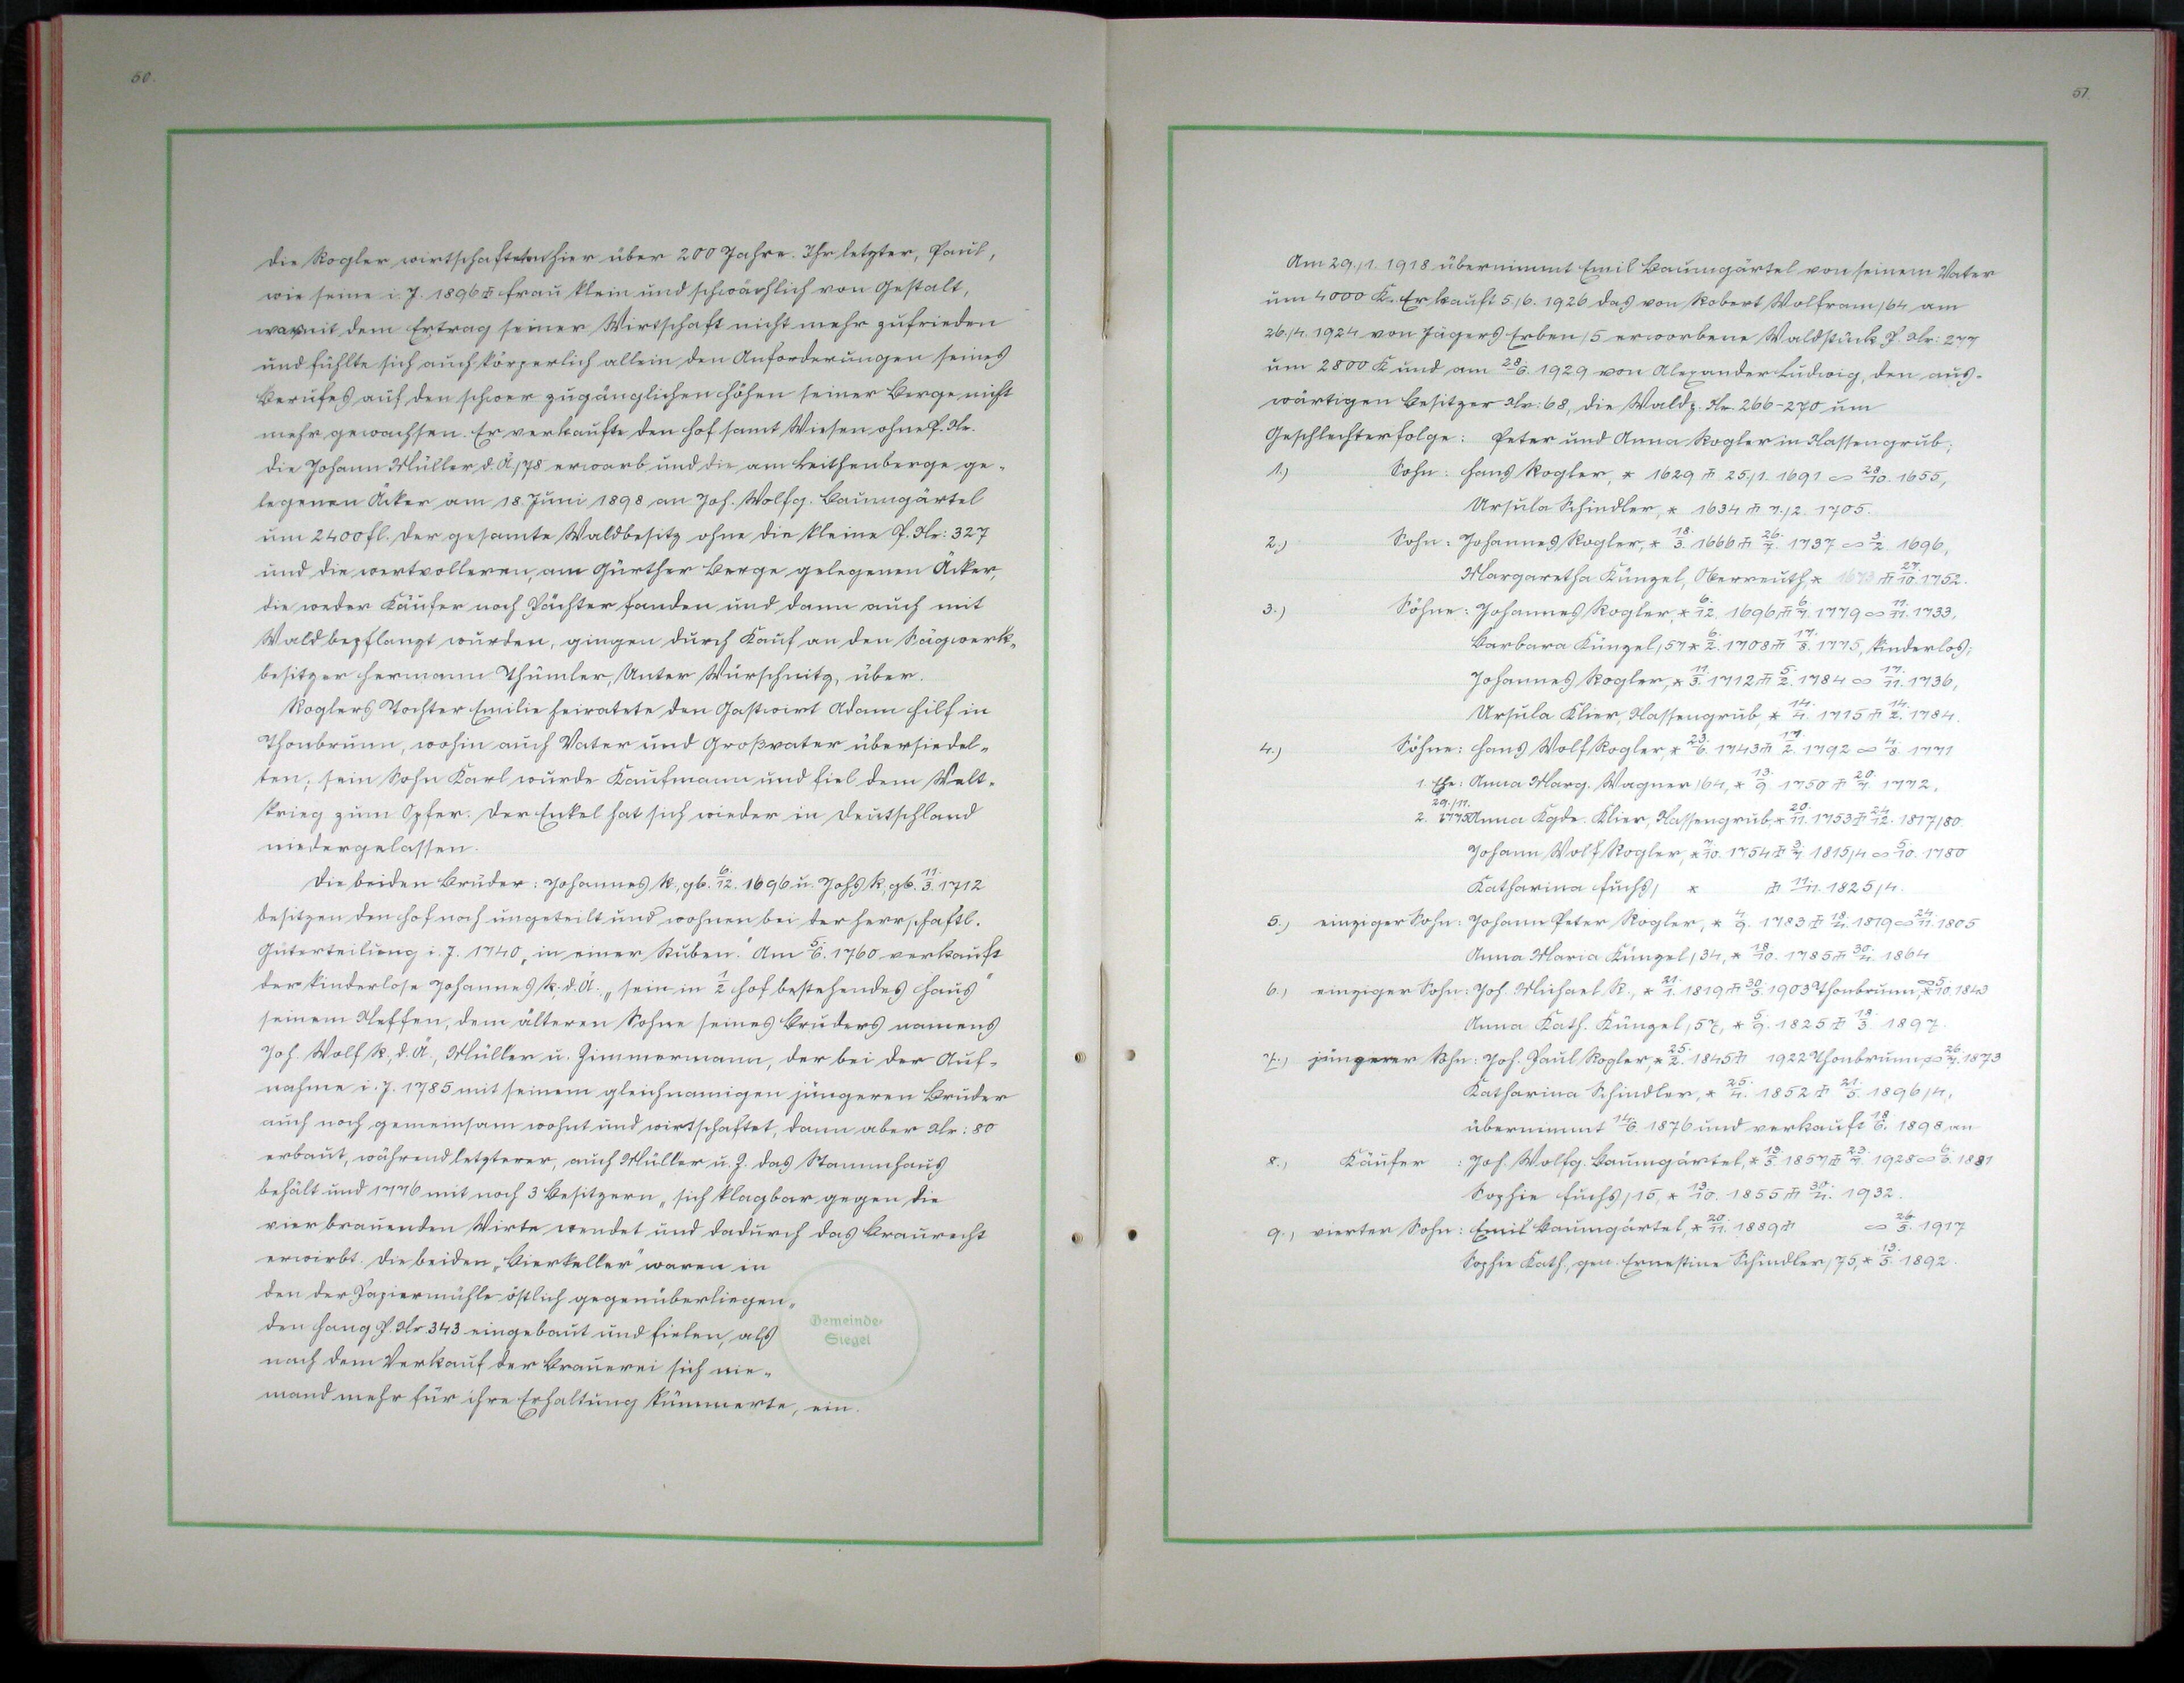 60.
Die Rogler wirtschafteten hier über 200 Jahre. Ihr letzter, Paul,
wie seine i. J. 1896 ✝ Frau klein und schwächlich von Gestalt,
war mit dem Ertrag seiner Wirtschaft nicht mehr zufrieden
und fühlte sich auch körperlich allein den Anforderungen seines
Berufes auf den schwer zugänglichen Höhen seiner Berge nicht
mehr gewachsen. Er verkaufte den Hof samt Wiesen ohne P. Nr.
die Johann Müller d. Ä/78 erwarb und die am Leithenberge ge-
legenen Äcker am 18. Juni 1898 an Joh. Wolfg. Baumgärtel
um 2400 fl. Der gesamte Waldbesitz ohne die kleine P. Nr: 327
und die wertvolleren, am Gürther Berge gelegenen Äcker,
die weder Käufer noch Pächter fanden und dann auch mit
Wald bepflanzt wurden, gingen durch Kauf an den Sägwerk-
besitzer Hermann Thümler, Unter Würschnitz, über.
Roglers Tochter Emilie heiratete den Gastwirt Adam Hilf in
Thonbrunn, wohin auch Vater und Großvater übersiedel-
ten; sein Sohn Karl wurde Kaufmann und fiel dem Welt-
krieg zum Opfer. Der Enkel hat sich wieder in Deutschland
niedergelassen.
Die beiden Brüder: Johannes R., gb. 6./12. 1696 u. Johs R, gb. 11./3. 1712
besitzen den Hof noch ungeteilt und wohnen bei der herrschaftl.
Güterteilung i. J. 1740 „in einer Stuben." Am 5./6. 1760 verkauft
der kinderlose Johannes R. d. Ä. „sein in 1/2 Hof bestehendes Haus"
seinem Neffen, dem älteren Sohne seines Bruders namens
Joh. Wolf R. d. Ä., Müller u. Zimmermann, der bei der Auf-
nahme i. J. 1785 mit seinem gleichnamigen jüngeren Bruder
auch noch gemeinsam wohnt und wirtschaftet, dann aber Nr: 80
erbaut, während letzterer, auch Müller u. Z. das Stammhaus
behält und 1776 mit noch 3 Besitzern „sich klagbar gegen die
vier brauenden Wirte wendet und dadurch das Braurecht
erwirbt. Die beiden „Bierkeller" waren in
den der Papiermühle östlich gegenüberliegen-
den Hang P. Nr 343 eingebaut und fielen, als
nach dem Verkauf der Brauerei sich nie-
mand mehr für ihre Erhaltung kümmerte, ein.
Gemeinde-
Siegel
61.
Am 29./1. 1918 übernimmt Emil Baumgärtel von seinem Vater
um 4000 K. Er kauft 5./6. 1926 das von Robert Wolfram/64 am
26./4. 1924 von Jägers Erben/5 erworbene Waldstück P. Nr: 277
um 2800 K und am 28./6. 1929 von Alexander Ludwig, den aus-
wärtigen Besitzer Nr: 68, die Waldp. Nr. 266-270 um
Geschlechterfolge: Peter und Anna Rogler in Nassengrub;
1.) Sohn: Hans Rogler, * 1629 ✝ 25./1. 1691 ∞ 28./10. 1655,
Ursula Schindler, * 1634 ✝ 7./2. 1705.
2.) Sohn: Johannes Rogler, * 18./3. 1666 ✝ 26./7. 1737 ∞ 3./2. 1696,
Margaretha Künzel, Oberreuth, * 1673 ✝ 27./10. 1752.
3.) Söhne: Johannes Rogler, * 6./12. 1696 ✝ 6./7. 1779 ∞ 11./11. 1733,
Barbara Künzel/57 * 6./2. 1708 ✝ 17./8. 1775, kinderlos;
Johannes Rogler, * 11./3. 1712 ✝ 5./2. 1784 ∞ 17./11. 1736,
Ursula Klier, Nassengrub, * 14./4. 1715 ✝ 14./2. 1784.
4.) Söhne: Hans Wolf Rogler, * 23./6. 1743 ✝ 17./2. 1792 ∞ 4./8. 1771
1. Ehe: Anna Marg. Wagner/64, * 13./9. 1750 ✝ 20./7. 1772,
2. 29./11. 1775 Anna Kgde. Klier, Nassengrub, * 20./11. 1753 ✝ 24./12. 1817/80.
Johann Wolf Rogler, * 7./10. 1754 ✝ 3./7. 1815/4 ∞ 5./10. 1780
Katharina Fuchs/ * ✝ 11./11. 1825/4.
5.) einziger Sohn: Johann Peter Rogler, * 4./9. 1783 ✝ 18./4. 1819 ∞ 24./11. 1805
Anna Maria Künzel/34, * 18./10. 1785 ✝ 30./4. 1864
6.) einziger Sohn: Joh. Michael R., * 21./1. 1819 ✝ 30./5. 1903 Thonbrunn, ∞ 5./10. 1843
Anna Kath. Künzel/57, * 5./9. 1825 ✝ 18./3. 1897.
7.) jüngerer Sohn: Joh. Paul Rogler, * 25./2. 1845 ✝ 1922 Thonbrunn, ∞ 26./7. 1873
Katharina Schindler, * 25./4. 1852 ✝ 21./5. 1896/4,
übernimmt 14./6. 1876 und verkauft 18./6. 1898 an
8.) Käufer : Joh. Wolfg. Baumgärtel, * 13./5. 1857 ✝ 23./7. 1928 ∞ 6./6. 1881
Sophie Fuchs/15, * 13./10. 1855 ✝ 30./4. 1932.
9.) vierter Sohn: Emil Baumgärtel, * 20./11. 1889 ✝ ∞ 26./5. 1917
Sophie Kath, gen. Ernestine Schindler/75, * 13./5. 1892.